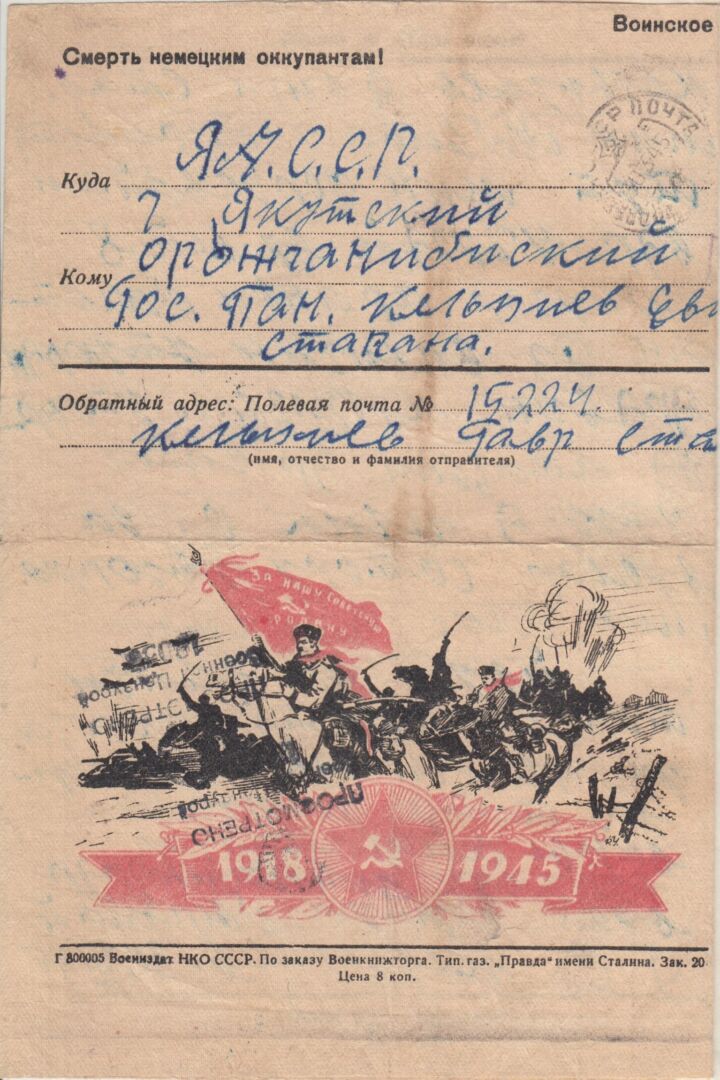 Воинское
Смерть немецким оккупантам!
ПОЧТА
Куда ЯА.С.С.Р.
г Якутский
Кому
Гос. Пан. Кельзиев Еви
стапана.
Обратный адрес: Полевая почта № 15224.
Кельзиев Гавр Ста
(имя, отчество и фамилия отправителя)
ЗА НАШУ Советскую
РОДИНУ
Военной Цензурой
ПРОСМОТРЕНО
1918 1945
Г 800005 Воениздат НКО СССР. По заказу Военкнижторга. Тип. газ. „Правда“ имени Сталина. Зак. 20
Цена 8 коп.